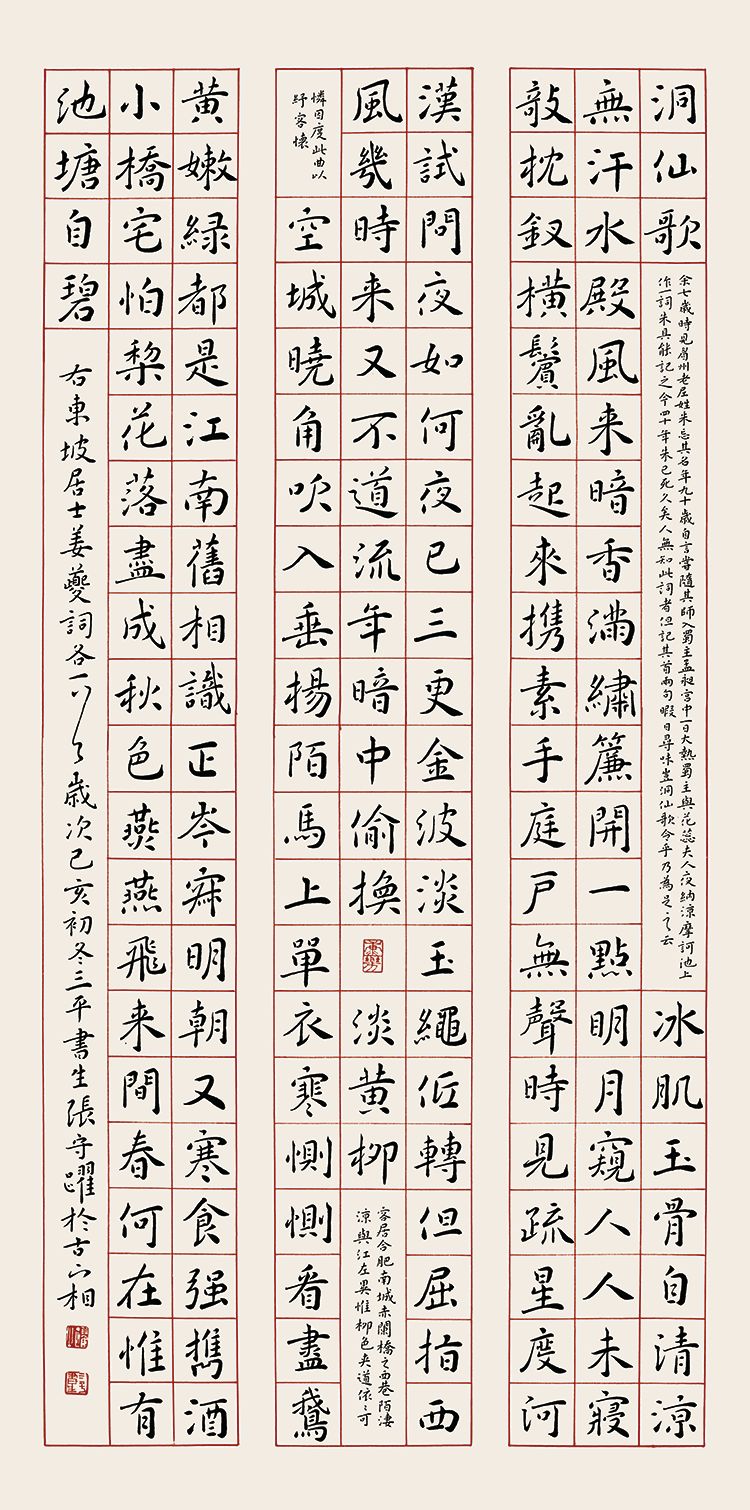 洞仙歌
余七歲時見眉州老尼姓朱忘其名年九十歲自言嘗隨其師入蜀主孟昶宮中一日大熱蜀主與花蕊夫人夜納涼摩訶池上
作一詞朱具能記之今四十年朱已死久矣人無知此詞者但記其首兩句暇日尋味豈洞仙歌令乎乃為足之云
冰肌玉骨自清涼
無汗水殿風来暗香滿繡簾開一點明月窺人人未寢
敧枕釵橫鬢亂起來携素手庭戶無聲時見疏星度河
漢試問夜如何夜已三更金波淡玉繩低轉但屈指西
風幾時来又不道流年暗中偷換
淡黄柳
客居合肥南城赤闌橋之西巷陌淒
涼與江左異惟柳色夾道依〻可
憐因度此曲以
紓客懷
空城曉角吹入垂楊陌馬上單衣寒惻惻看盡鵞
黄嫩緑都是江南舊相識正岑寂明朝又寒食强携酒
小橋宅怕梨花落盡成秋色燕燕飛来問春何在惟有
池塘自碧
右東坡居士姜夔詞各一
歲次己亥初冬三平書生張守躍於古相